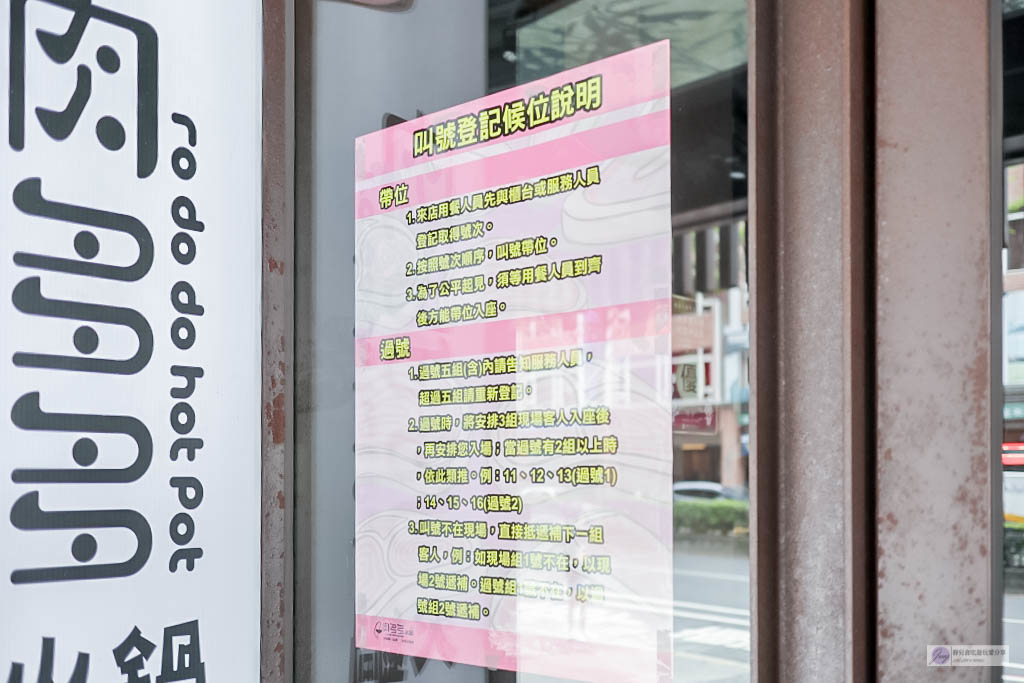 肉
ro do do hot pot
火鍋
叫號登記候位說明
帶位
1. 來店用餐人員先與櫃台或服務人員
登記取得號次。
2. 按照號次順序，叫號帶位。
3. 為了公平起見，須等用餐人員到齊
後方能帶位入座。
過號
1. 過號五組(含)內請告知服務人員，
超過五組請重新登記。
2. 過號時，將安排3組現場客人入座後
，再安排您入場；當過號有2組以上時
，依此類推。例：11、12、13(過號1)
；14、15、16(過號2)
3. 叫號不在現場，直接抵遞補下一組
客人，例：如現場組1號不在，以現
場2號遞補。過號組1號不在，以過
號組2號遞補。